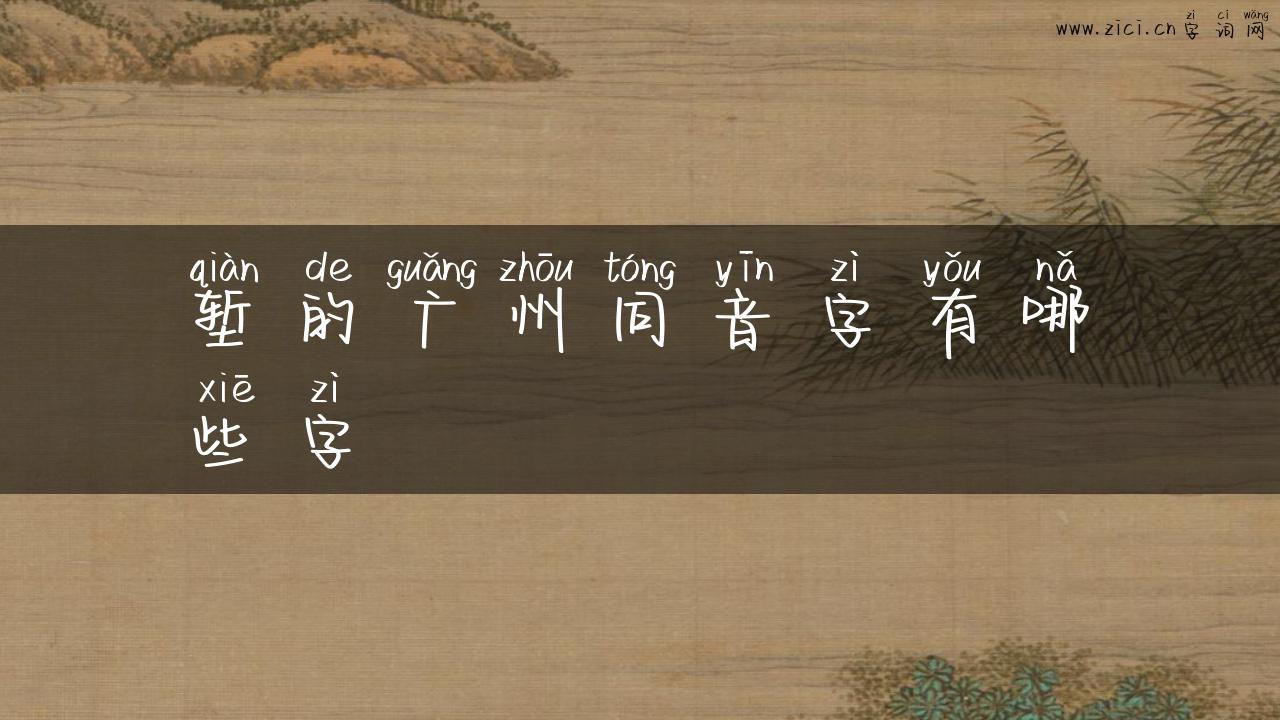 www.zici.cn 字词网
zì cí wǎng
qiàn de guǎng zhōu tóng yīn zì yǒu nǎ
堑的广州同音字有哪
xiē zì
些字